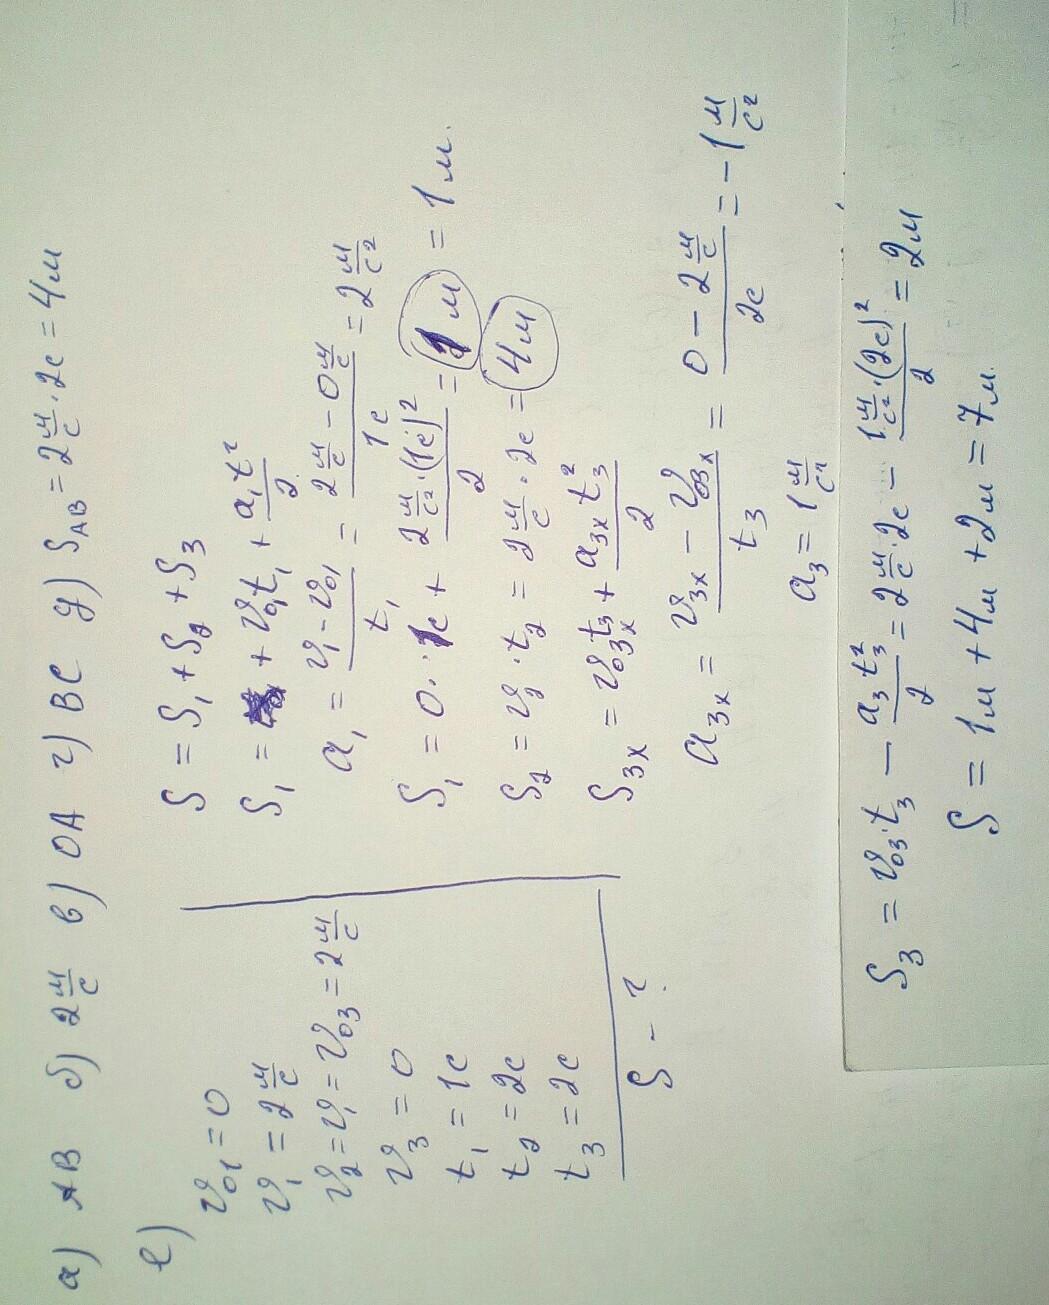 а) АВ б) 2 м/с в) ОА г) ВС д) S_AB = 2 м/с · 2с = 4м
е)
v₀₁ = 0
v₁ = 2 м/с
v₂ = v₁ = v₀₃ = 2 м/с
v₃ = 0
t₁ = 1с
t₂ = 2с
t₃ = 2с
S – ?
S = S₁ + S₂ + S₃
S₁ = + v₀₁t₁ + a₁t²/2
a₁ = (v₁ – v₀₁)/t₁ = (2 м/с – 0 м/с)/1с = 2 м/с²
S₁ = 0 · 1с + (2 м/с² · (1с)²)/2 = 1м = 1м.
S₂ = v₂ · t₂ = 2 м/с · 2с = 4м
S₃ₓ = v₀₃ₓt₃ + a₃ₓt₃²/2
a₃ₓ = (v₃ₓ – v₀₃ₓ)/t₃ = (0 – 2 м/с)/2с = –1 м/с²
a₃ = 1 м/с²
S₃ = v₀₃·t₃ – a₃t₃²/2 = 2 м/с · 2с – (1 м/с² · (2с)²)/2 = 2м
S = 1м + 4м + 2м = 7м.